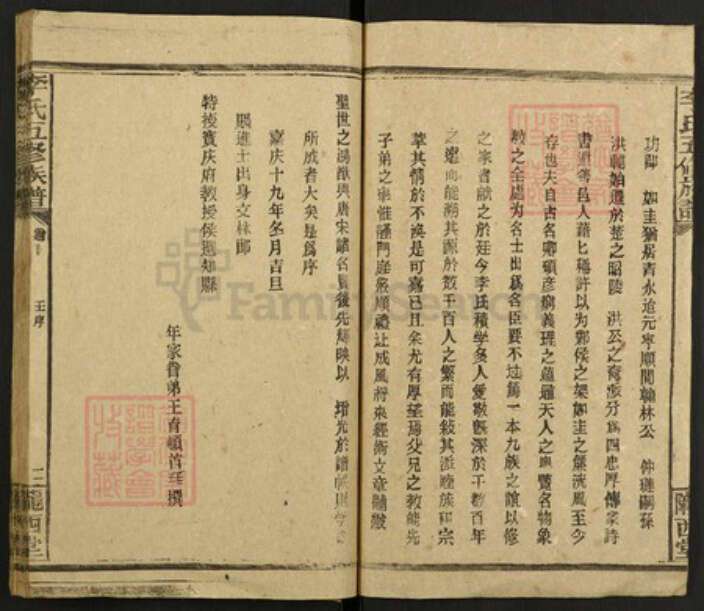 李氏五修族譜
功郎 如圭猶居青永迨元寧順間翰林公 仲璡嗣孫
洪卿始遷於楚之昭陵 洪公之裔孫分為四忠厚傳家詩
書 邑人藉匕稱許以為鄴侯之架如圭之 流風至今
存也夫自古名卿碩彥窮義理之蘊通天人之 覽名物象
數之全處為名士出為名臣要不過篤一本九族之誼以修
之家者獻之於廷今李氏積學多人愛敬 深於千數百年
之 而能溯其源於數千百人之繁而能敘其派 族和宗
萃其情於不渙是可嘉已且余尤有厚望焉父兄之教能先
子弟之率惟謹門庭嚴順禮讓成風將來經術文章 黻
聖世之鴻猷與唐宋諸名賢後先輝映以 增光於譜帙則
所成者大矣是為序
嘉庆十九年冬月吉旦
賜進士出身文林郎
特授寳庆府教授侯選知縣
年家眷弟王育 頓首拜撰
李氏五修族譜
王序
二
隴西堂
隴西堂
FamilySearch